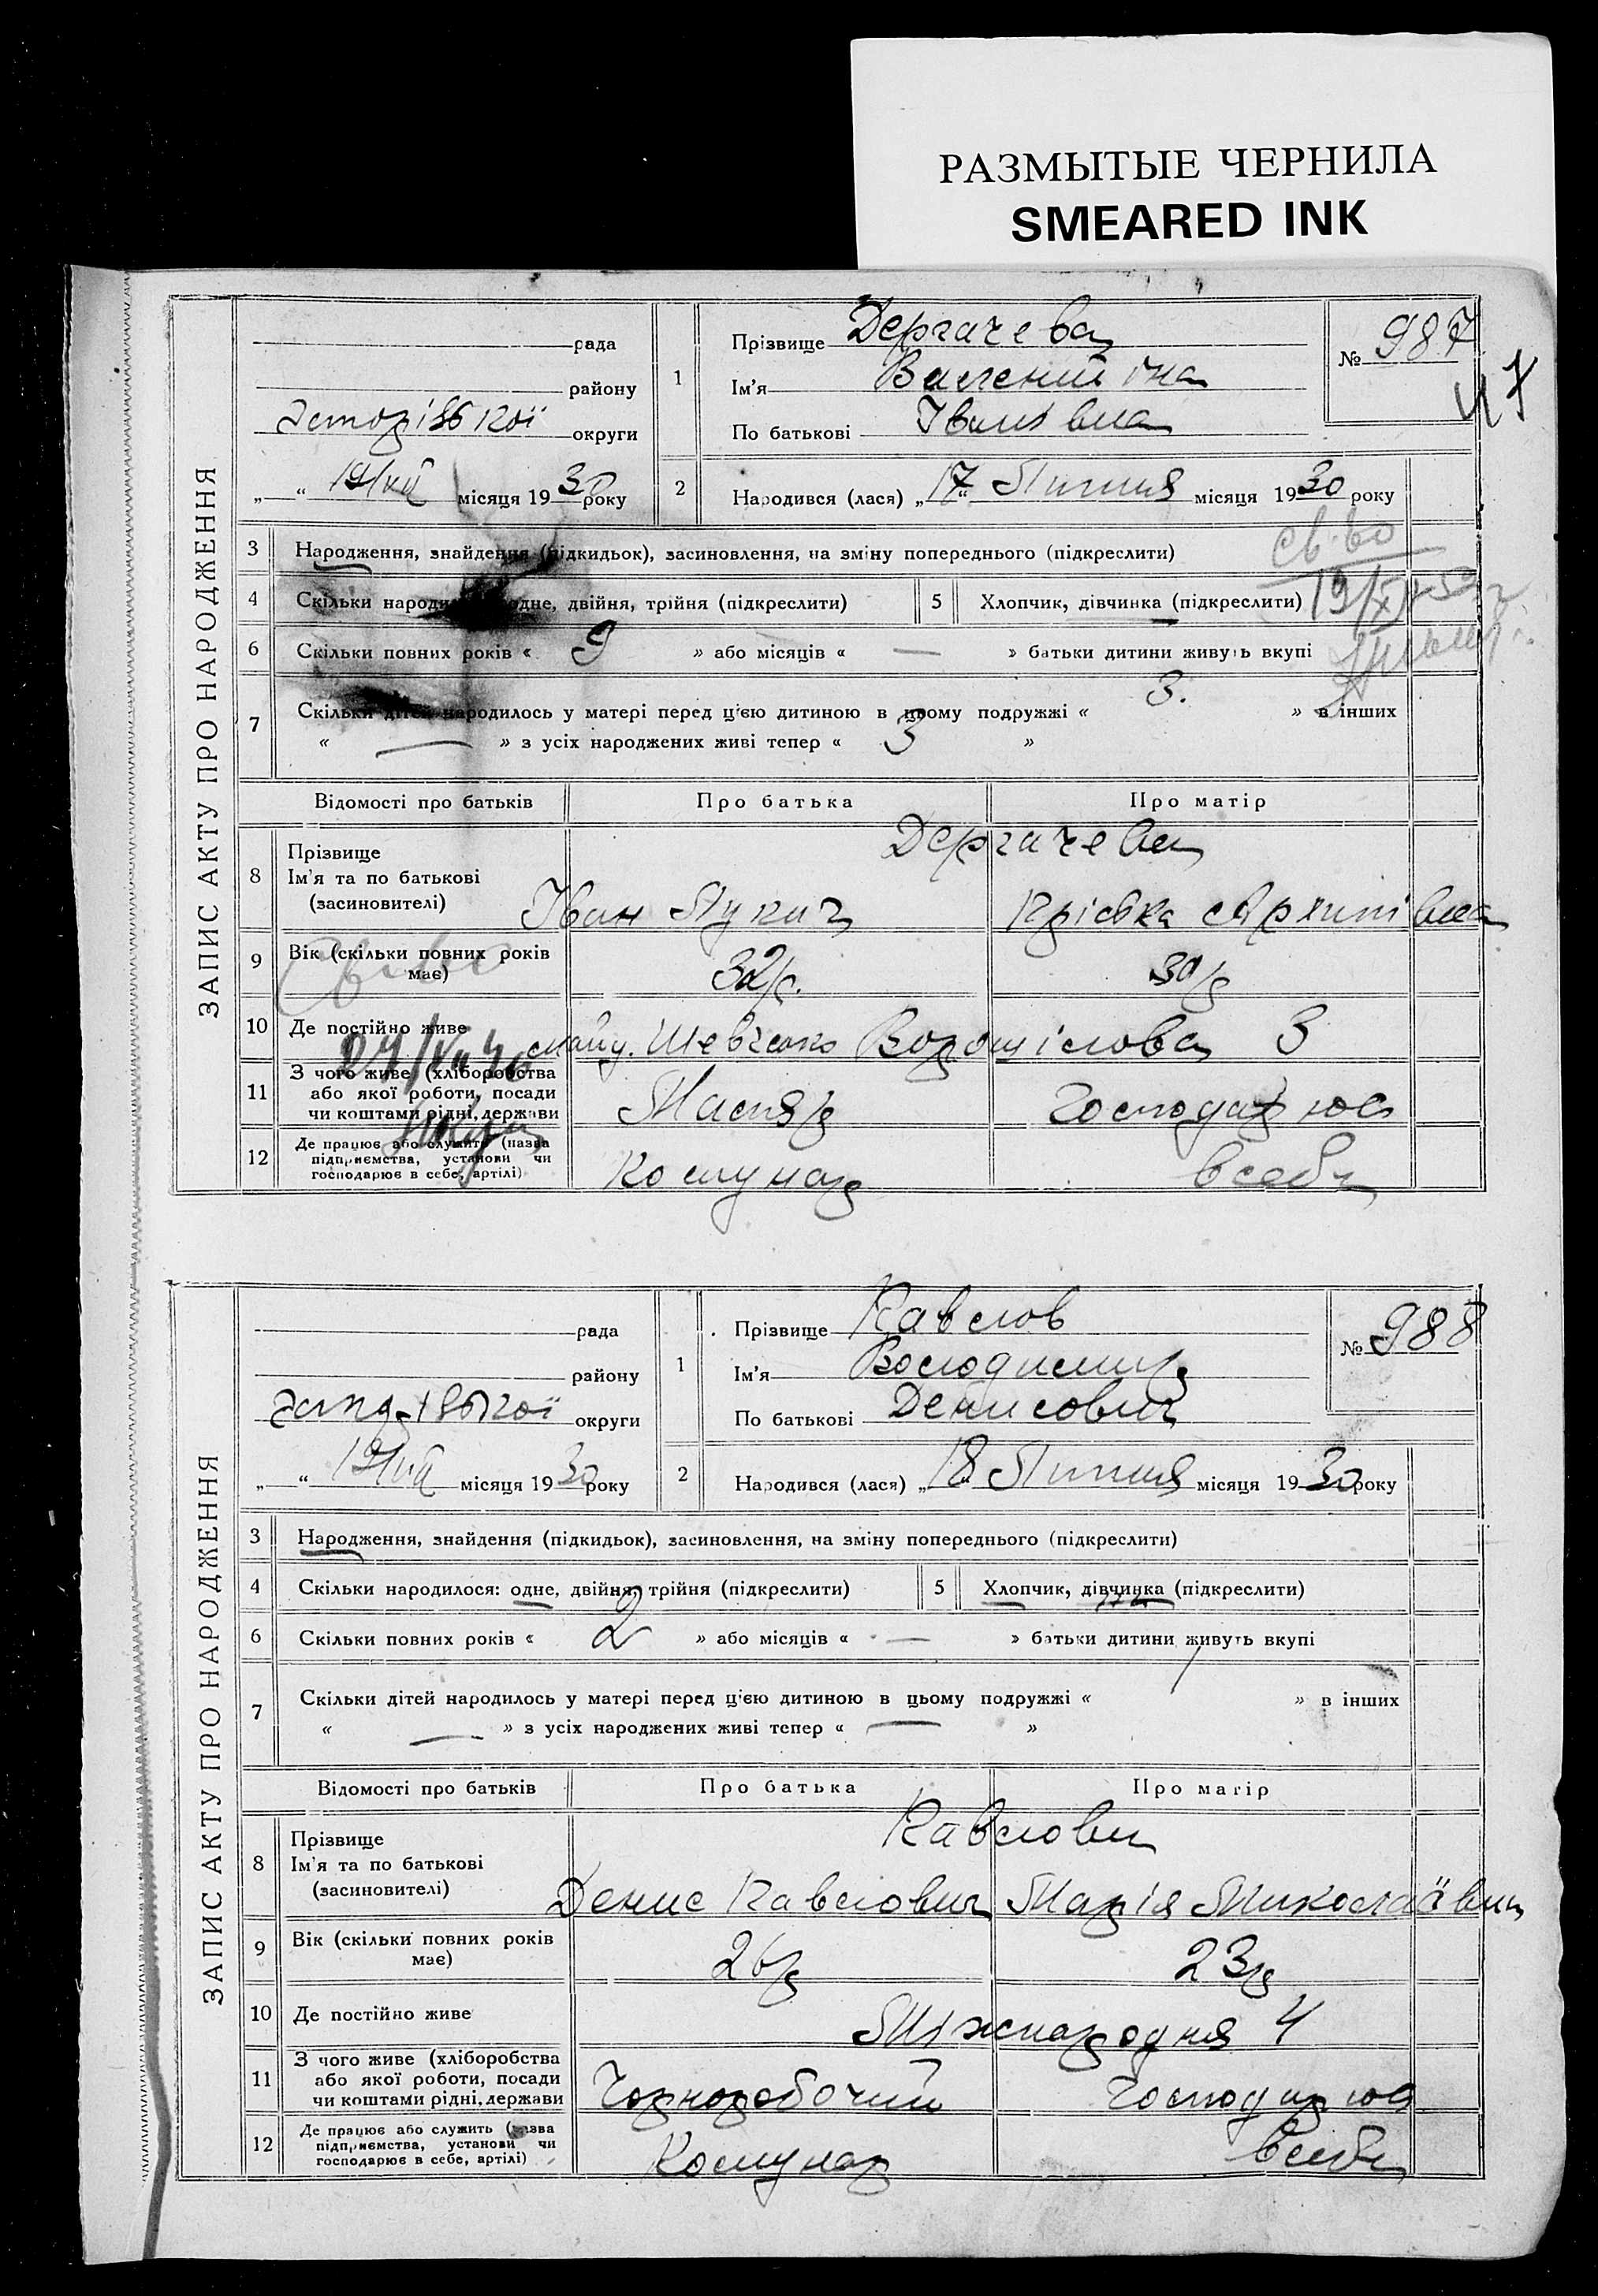 РАЗМЫТЫЕ ЧЕРНИЛА
SMEARED INK
ЗАПИС АКТУ ПРО НАРОДЖЕННЯ
рада
району
округи
„ “ 19/VII місяця 1930 року
1 Прізвище Дергачева
Ім'я Валентіна
По батькові Іванівна
№ 987
47
2 Народився (лася) „17“ Липня місяця 1930 року
3 Народження, знайдення (підкидьок), засиновлення, на зміну попереднього (підкреслити)
св-во
4 Скільки народи одне, двійня, трійня (підкреслити)
5 Хлопчик, дівчинка (підкреслити)
6 Скільки повних років « 9 » або місяців « — » батьки дитини живуть вкупі
7 Скільки дітей народилось у матері перед цією дитиною в цьому подружжі « 3. » в інших
« — » з усіх народжених живі тепер « 3 »
Відомості про батьків Про батька Про матір
8 Прізвище
Ім'я та по батькові
(засиновителі)
Дергачеви
Іван Лукич
Архипівна
9 Вік (скільки повних років має)
32/р.
30/р
10 Де постійно живе
майд. Шевченко Ворошілова 3
11 З чого живе (хліборобства або якої роботи, посади чи коштами рідні, держави
Маляр
Господарює
12 Де працює або служить (назва підприємства, установи чи господарює в себе, артілі)
Комунар
в себе
ЗАПИС АКТУ ПРО НАРОДЖЕННЯ
рада
району
округи
„ “ 19/VII місяця 1930 року
1 Прізвище Павлов
Ім'я Володимир
По батькові Денисович
№ 988
2 Народився (лася) „18“ Липня місяця 1930 року
3 Народження, знайдення (підкидьок), засиновлення, на зміну попереднього (підкреслити)
4 Скільки народилося: одне, двійня, трійня (підкреслити)
5 Хлопчик, дівчинка (підкреслити)
6 Скільки повних років « 2 » або місяців « — » батьки дитини живуть вкупі
7 Скільки дітей народилось у матері перед цією дитиною в цьому подружжі « 1 » в інших
« — » з усіх народжених живі тепер « — »
Відомості про батьків Про батька Про матір
8 Прізвище
Ім'я та по батькові
(засиновителі)
Павлови
Денис Павлович
Марія Миколаївна
9 Вік (скільки повних років має)
26/р
23/р
10 Де постійно живе
Міжнародня 4
11 З чого живе (хліборобства або якої роботи, посади чи коштами рідні, держави
Чорноробочий
Господарює
12 Де працює або служить (назва підприємства, установи чи господарює в себе, артілі)
Комунар
в себе